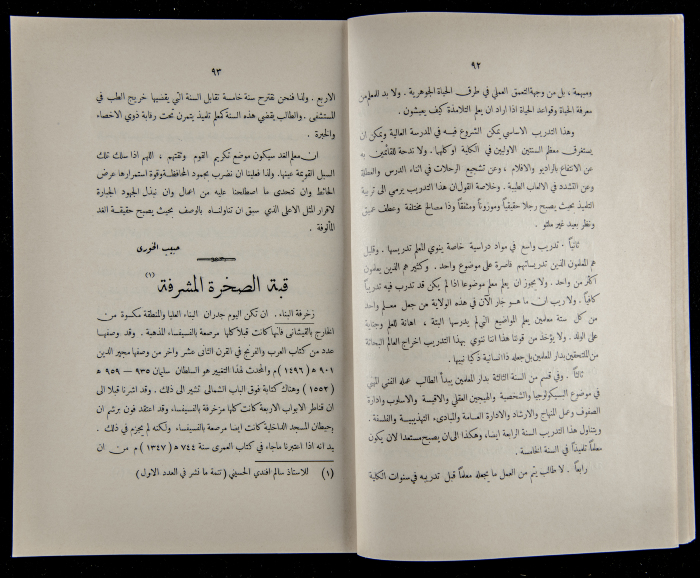 ٩٢
ومبهمة ، بل من وجهة التعمق العملي في طرق الحياة الجوهرية . ولا بد للمعلم من
معرفة الحياة وقواعد الحياة اذا اراد ان يعلم التلامذة كيف يعيشون .
وهذا التدريب الاساسي يمكن الشروع فيه في المدرسة العالية ويمكن ان
يستغرق معظم السنتين الاوليين في الكلية او كلها . ولا ندحة للقائمين به
عن الانتفاع بالراديو والافلام ، وعن تشجيع الرحلات في اثناء الدرس والعطلة
وعن التشدد في الالعاب الطبية . وخلاصة القول ان هذا التدريب يرمي الى تربية
التلميذ بحيث يصبح رجلا حقيقياً وموزوناً ومثقفاً وذا مصالح مختلفة وعطف عميق
ونظر بعيد غير ملتو .
ثانياً . تدريب واسع في مواد دراسية خاصة ينوي المعلم تدريسها . وقليل
هم المعلمون الذين تدريساتهم قاصرة على موضوع واحد . وكثير هم الذين يعلمون
اكثر من واحد . ولا يجوز ان يعلم معلم موضوعا اذا لم يكن قد تدرب فيه تدريباً
كافياً . ولا ريب ان ما هو جار الآن في هذه الولاية من جعل معلم واحد
من كل ستة معلمين يعلم المواضيع التي لم يدرسها البتة ، اهانة للعلم وجناية
على الولد . ولا يؤخذ من قولنا هذا اننا ننوي بهذا التدريب اخراج العالم البحاثة
من الملتحقين بدار المعلمين بل جعله ذا انسانية ذكيا نبيها .
ثالثاً . وفي قسم من السنة الثالثة بدار المعلمين يبدأ الطالب عمله الفني المهني
في موضوع السيكولوجيا والشخصية والهيجين العقلي والاقيسة والاسلوب وادارة
الصفوف وعمل المنهاج والارشاد والادارة العامة والمبادىء التهذيبية والفلسفة .
ويتناول هذا التدريب السنة الرابعة ايضا، وهكذا الى ان يصبح مستعدا لان يكون
معلماً تلميذاً في السنة الخامسة .
رابعاً . لا طالب يتم من العمل ما يجعله معلماً قبل تدريبه في سنوات الكلية
٩٣
الاربع . ولذا فنحن نقترح سنة خامسة تقابل السنة التي يقضيها خريج الطب في
المستشفى . والطالب يقضي هذه السنة كمعلم تلميذ يتمرن تحت رقابة ذوي الاخصاء
والخبرة .
ان معلم الغد سيكون موضع تكريم القوم وثقتهم ، اللهم اذا سلك تلك
السبل القويمة عينها . ولذا فعلينا ان نضرب بجمود المحافظة وقوة استمرارها عرض
الحائط وان نتحدى ما اصطلحنا عليه من اعمال وان نبذل الجهود الجبارة
لاقرار المثل الاعلى الذي سبق ان تناولناه بالوصف بحيث يصبح حقيقة الغد
المألوفة .
حبيب الخوري
قبة الصخرة المشرفة (١)
زخرفة البناء . ان تكن اليوم جدران البناء العليا والمنطقة مكسوة من
الخارج بالقيشاني فانها كانت قبلا كلها مرصعة بالفسيفساء المذهبة . وقد وصفها
عدد من كتاب العرب والفرنج في القرن الثاني عشر وآخر من وصفها مجير الدين
٩٠١ ه (١٤٩٦ ) م والمحدث لهذا التغيير هو السلطان سليمان ٩٣٥ – ٩٥٩ ه
(١٥٥٢ ) وهناك كتابة فوق الباب الشمالي تشير الى ذلك . وقد اشرنا قبلا الى
ان قناطر الابواب الاربعة كانت كلها مزخرفة بالفسيفساء. وقد اعتقد فون برشم ان
حيطان المسجد الداخلية كانت ايضا مرصعة بالفسيفساء ولكنه لم يجزم في ذلك .
بيد انه اذا اعتبرنا ما جاء في كتاب العمري سنة ٧٤٤ ه (١٣٤٧ ) م من ان
(١) للاستاذ سالم افندي الحسيني ( تتمة ما نشر في العدد الاول )